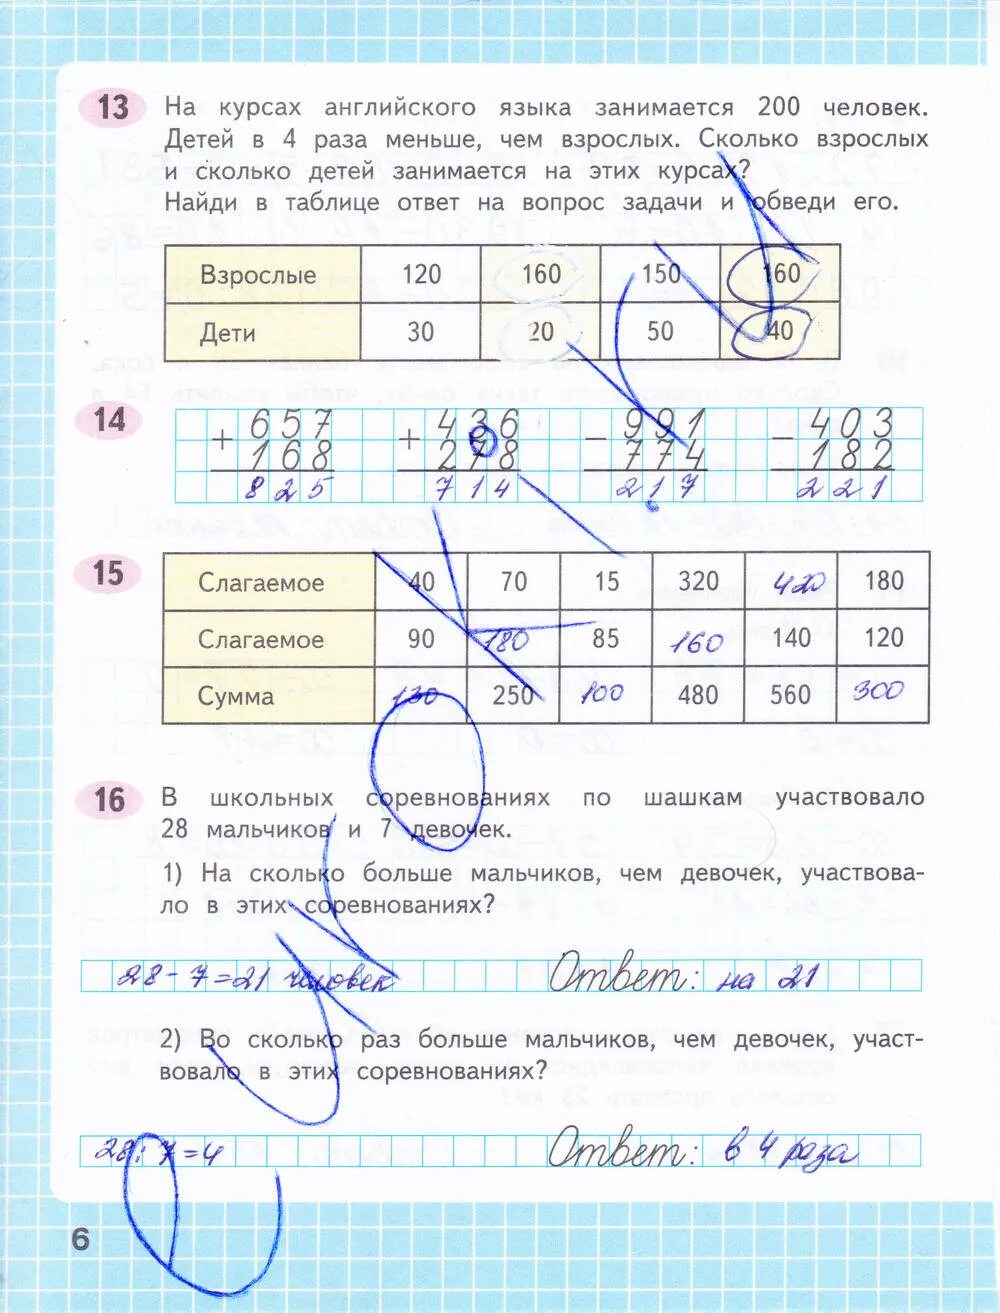 13 На курсах английского языка занимается 200 человек.
Детей в 4 раза меньше, чем взрослых. Сколько взрослых
и сколько детей занимается на этих курсах?
Найди в таблице ответ на вопрос задачи и обведи его.
Взрослые 120 160 150 160
Дети 30 20 50 40
14 + 657 + 436 - 991 - 403
168 278 774 182
825 714 217 221
15 Слагаемое 40 70 15 320 420 180
Слагаемое 90 180 85 160 140 120
Сумма 130 250 100 480 560 300
16 В школьных соревнованиях по шашкам участвовало
28 мальчиков и 7 девочек.
1) На сколько больше мальчиков, чем девочек, участвова-
ло в этих соревнованиях?
28-7=21 человек Ответ: на 21
2) Во сколько раз больше мальчиков, чем девочек, участ-
вовало в этих соревнованиях?
28:7=4 Ответ: в 4 раза
6